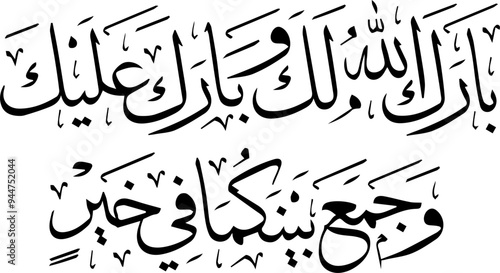 بَارَكَ اللهُ لَكَ وَبَارَكَ عَلَيْكَ
وَجَمَعَ بَيْنَكُمَا فِي خَيْرٍ
Adobe Stock | #944752044